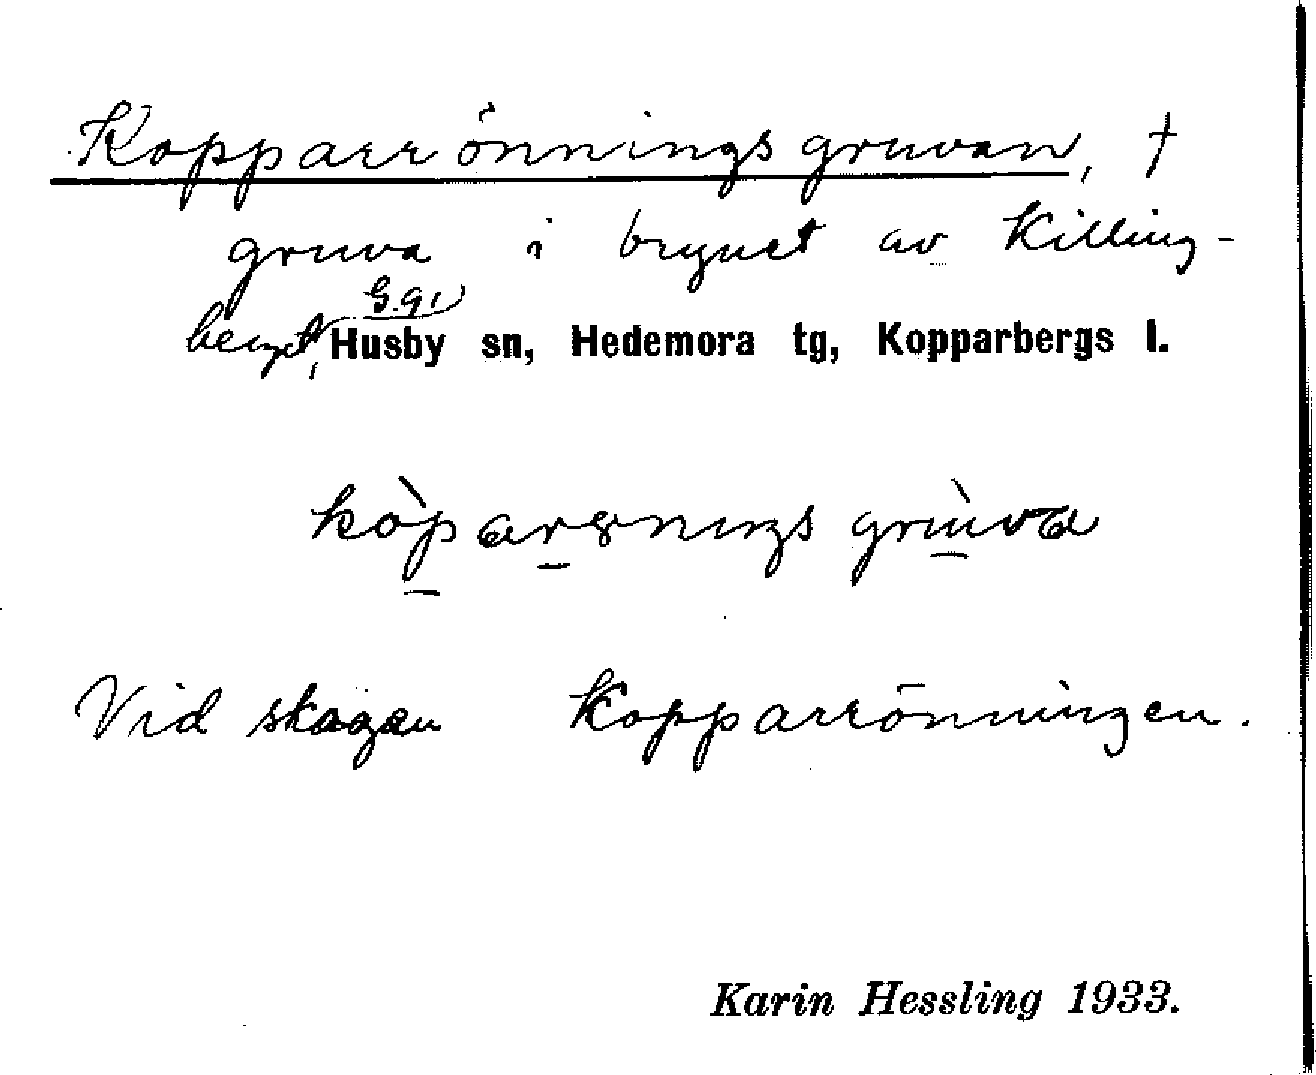 Kopparrönningsgruvan, †
gruva i brynet av Killing-
berget, Husby sn, Hedemora tg, Kopparbergs l.
Vid skogen Kopparrönningen.
Karin Hessling 1933.